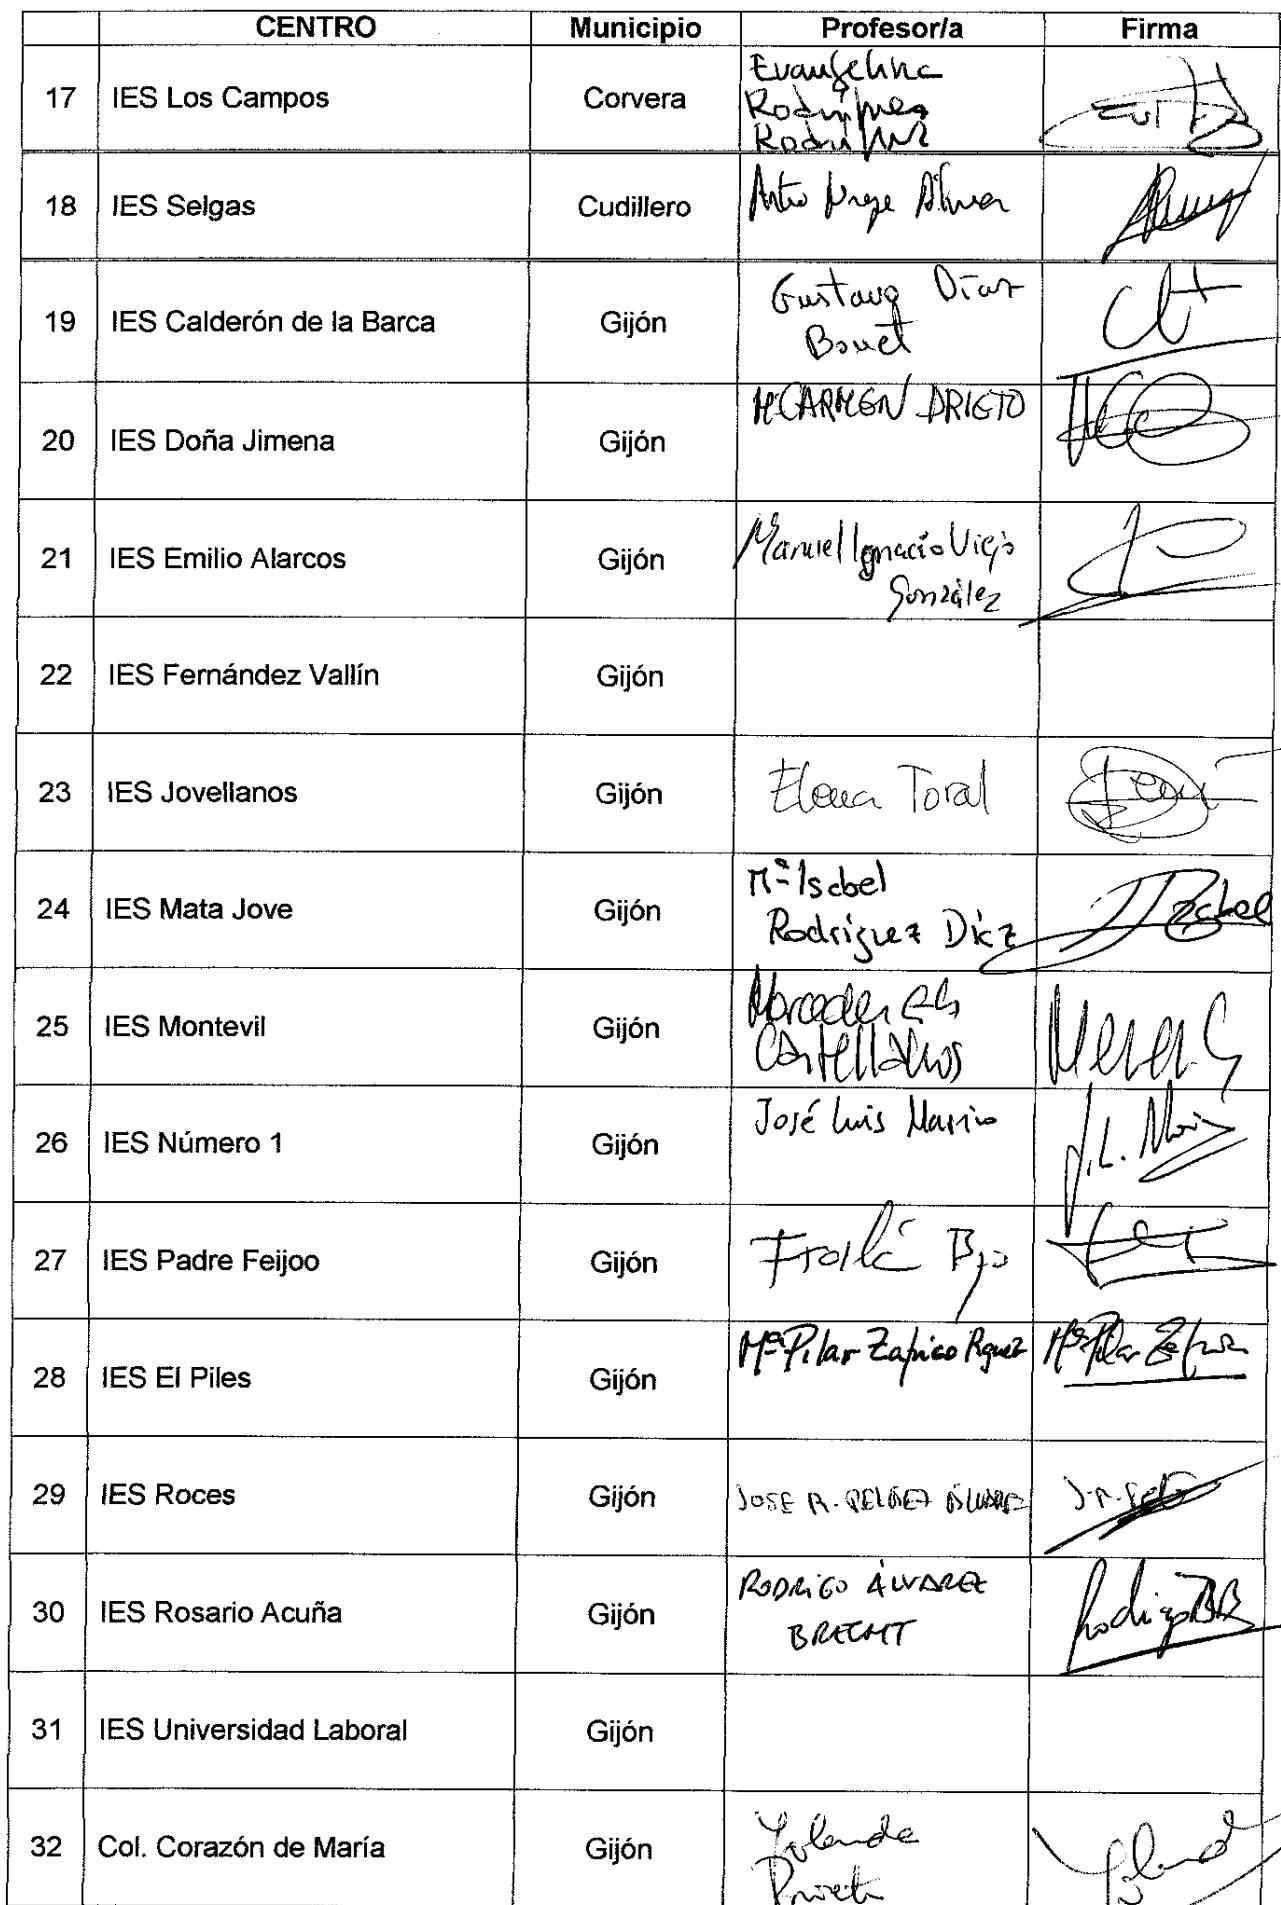 CENTRO Municipio Profesor/a Firma
17 IES Los Campos Corvera Evangelina
Rodríguez
Rodríguez
18 IES Selgas Cudillero
19 IES Calderón de la Barca Gijón Gustavo Díaz
Bonet
20 IES Doña Jimena Gijón Mª CARMEN PRIETO
21 IES Emilio Alarcos Gijón Manuel Ignacio Viejo
González
22 IES Fernández Vallín Gijón
23 IES Jovellanos Gijón Elena Toral
24 IES Mata Jove Gijón Mª Isabel Isabel
Rodríguez Díaz
25 IES Montevil Gijón Mercedes
Castellanos
26 IES Número 1 Gijón José Luis Marino J.L.
27 IES Padre Feijoo Gijón
28 IES El Piles Gijón Mª Pilar Zapico Rguez Mª Pilar
29 IES Roces Gijón JOSE R. PELÁEZ ÁLVAREZ
30 IES Rosario Acuña Gijón RODRIGO ÁLVAREZ Rodrigo
BRECHT
31 IES Universidad Laboral Gijón
32 Col. Corazón de María Gijón Yolanda
Prieto